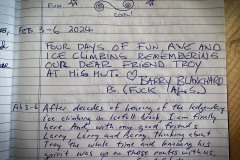 FUN
COOL!
FEB 3-6 2024
FOUR DAYS OF FUN, AVE AND
ICE CLIMBING REMEMBERING
OUR DEAR FRIEND TROY
AT HIS HUT. ♡ BARRY BLANCHARD
PS (FUCK A.L.S.)
Feb 3-6 After decades of hearing of the legendary
ice climbing in Icefall brook, I am finally
here. And, with my good friends
Larry, Larry and Barry, thinking about
Troy the whole time and knowing his
spirit was up on these routes with us.